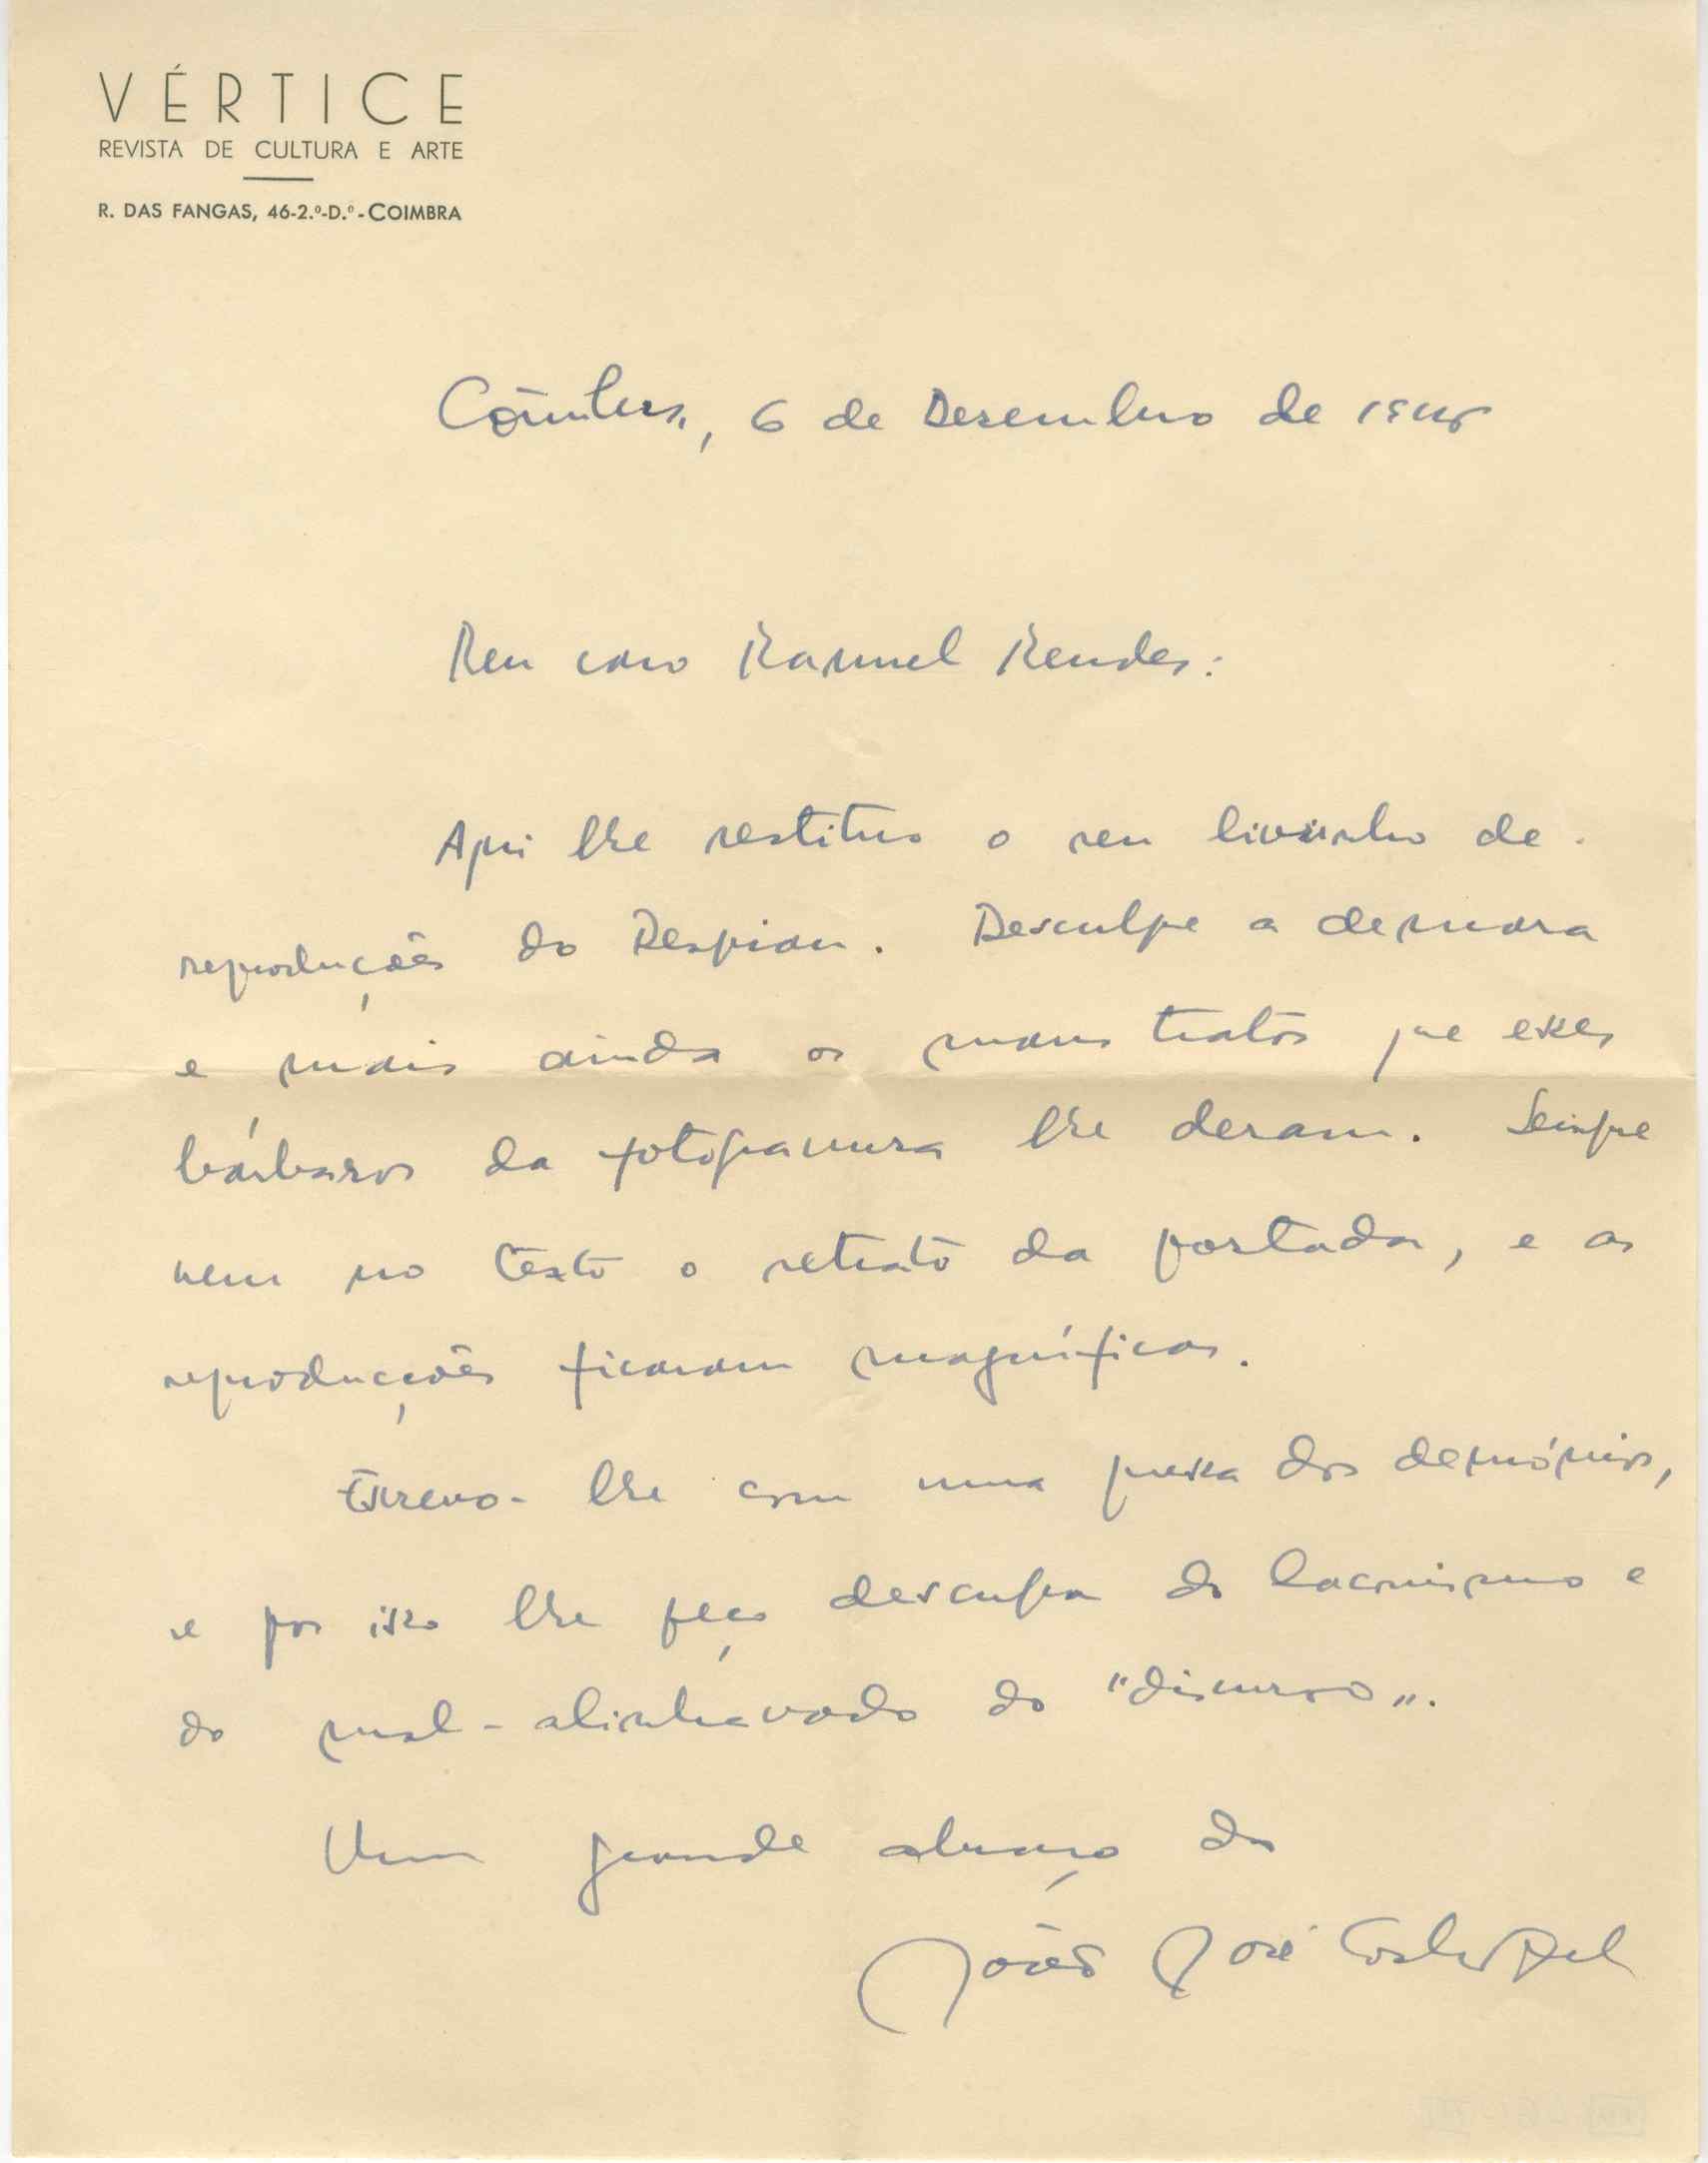 VÉRTICE
REVISTA DE CULTURA E ARTE
R. DAS FANGAS, 46-2.º-D.º - COIMBRA
Coimbra, 6 de Dezembro de
Meu caro Manuel Mendes:
Aqui lhe restituo o seu livrinho de
reproduções do Despiau. Desculpe a demora
e mais ainda os maus tratos que esses
bárbaros da fotogravura lhe deram. Sempre
vem no texto o retrato da portada, e as
reproduções ficaram magníficas.
Escrevo-lhe com uma pressa dos demónios,
e por isso lhe peço desculpa do laconismo e
do mal-alinhavado do "discurso".
Um grande abraço do
João José Cochofel